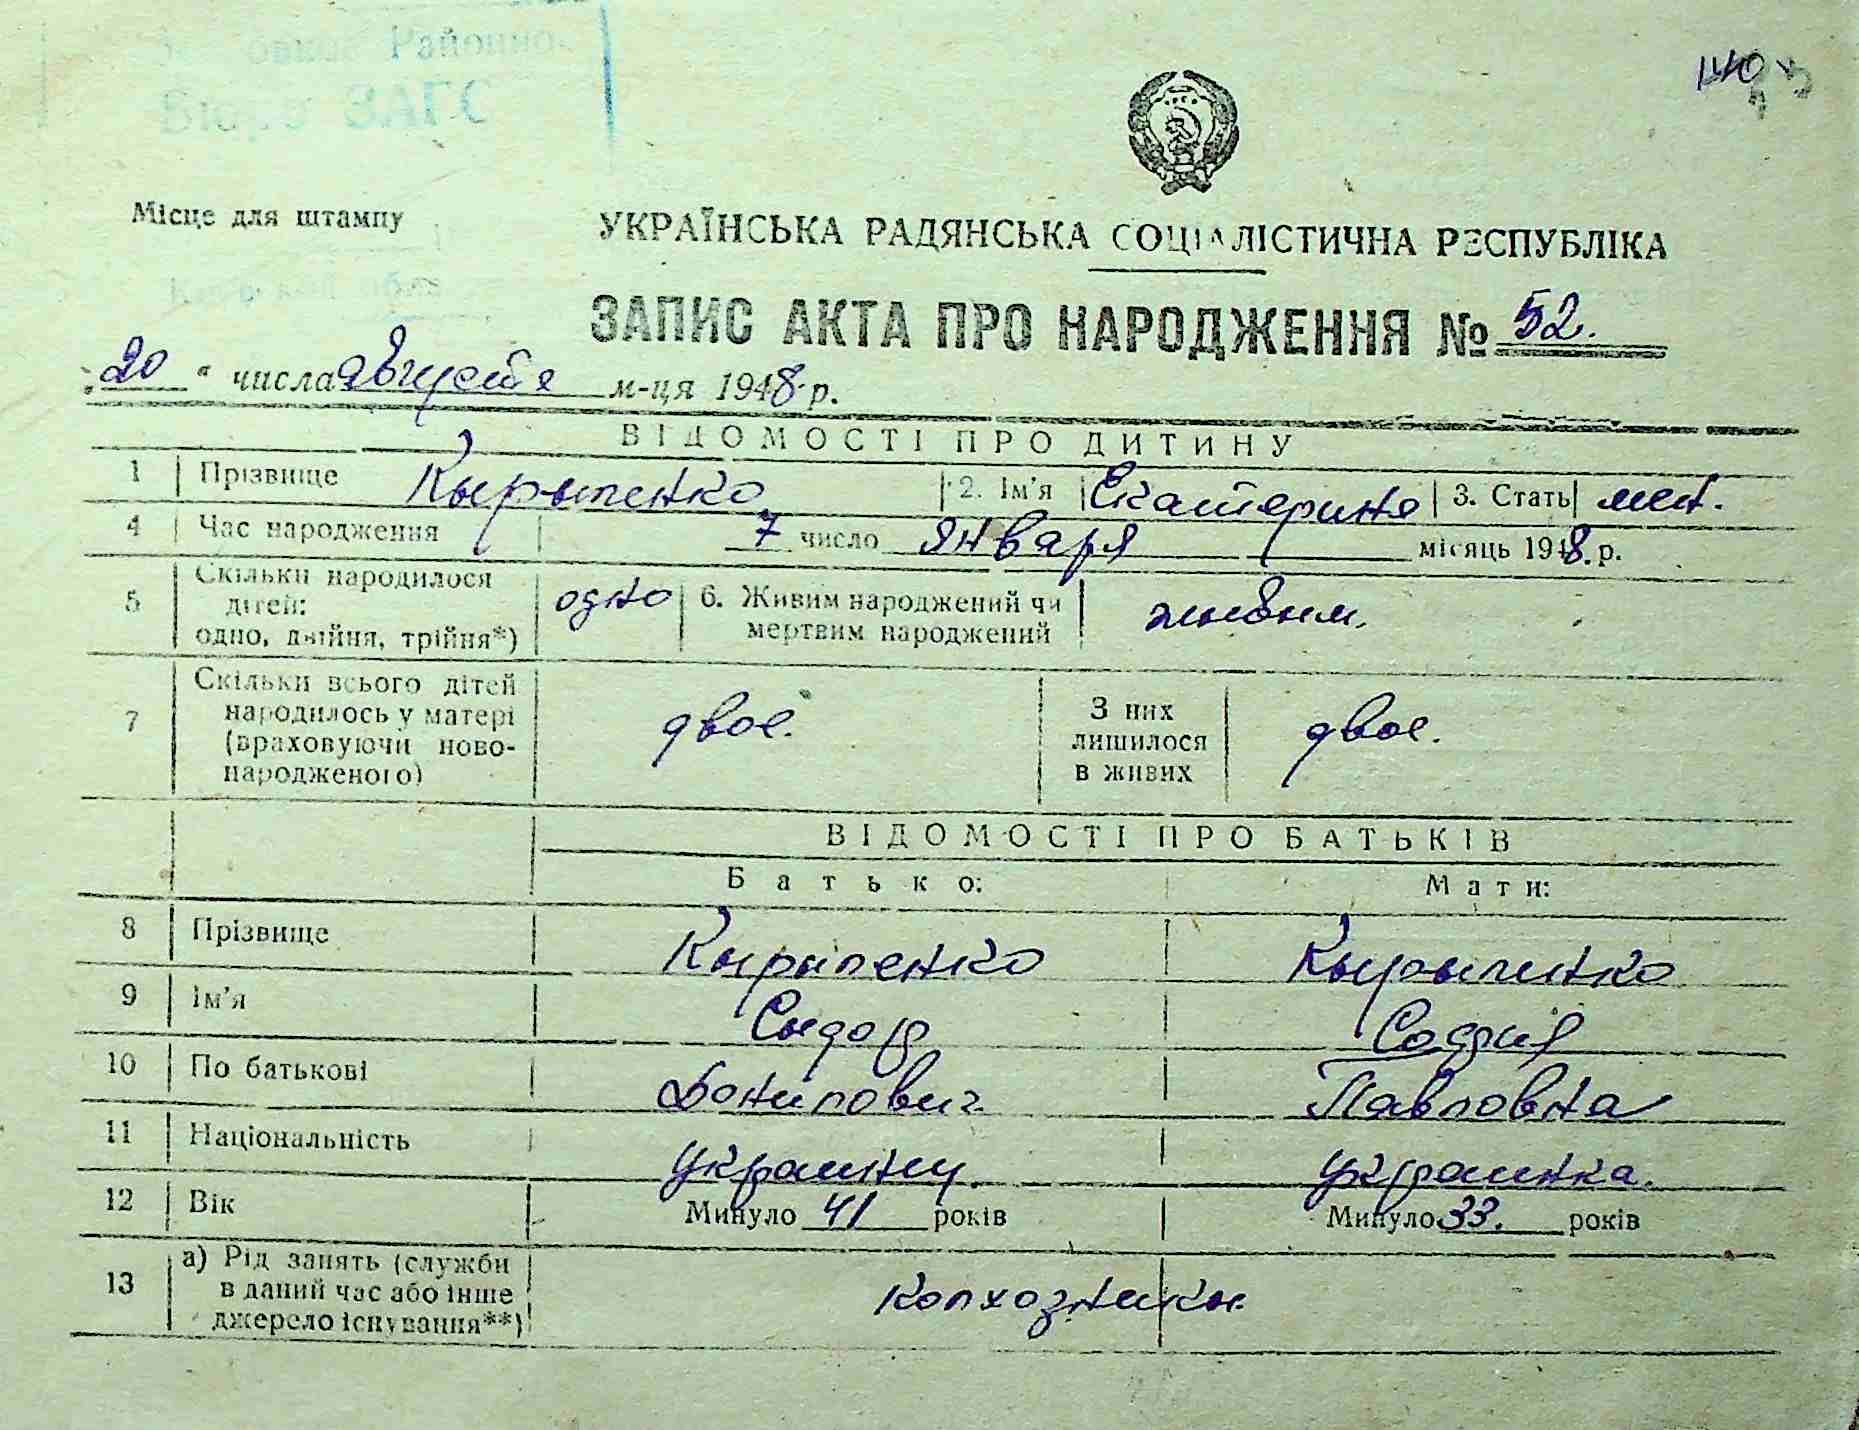 Районно
Бюро ЗАГС
140
Місце для штампу
УКРАЇНСЬКА РАДЯНСЬКА СОЦІАЛІСТИЧНА РЕСПУБЛІКА
ЗАПИС АКТА ПРО НАРОДЖЕННЯ № 52.
„20“ числа августа м-ця 1948 р.
ВІДОМОСТІ ПРО ДИТИНУ
1 Прізвище Кырыпенко 2. Ім'я Екатерина 3. Стать жен.
4 Час народження 7 число января місяць 1948. р.
5 Скільки народилося дітей: одно, двійня, трійня*) одно 6. Живим народжений чи мертвим народжений живым.
7 Скільки всього дітей народилось у матері (враховуючи новонародженого) двое. З них лишилося в живих двое.
ВІДОМОСТІ ПРО БАТЬКІВ
Батько: Мати:
8 Прізвище Кырыпенко Кырыпенко
9 Ім'я Сыдор София
10 По батькові Данилович Павловна
11 Національність украинец украинка.
12 Вік Минуло 41 років Минуло 33. років
13 а) Рід занять (служби в даний час або інше джерело існування**) колхозники.